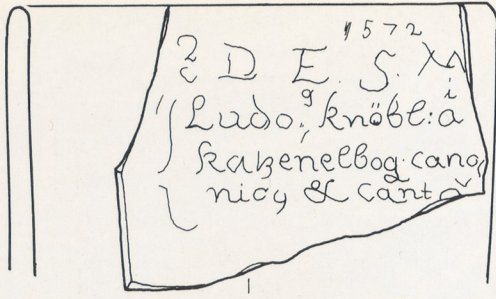 1572
D E. S.
Ludo⁹, knöbl: a
katzenelbog. cano
nicꝯ & cant